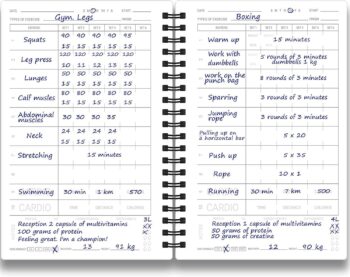 Gym. Legs
Squats 90 90 90 90 95
15 15 15 15 15
Leg press 110 110 112 113 115
10 12 12 13 15
Lunges 50 50 50 50 50
15 15 15 15 15
Calf musles 80 80 80 80 80
15 15 15 15 15
Abdominal muscles 30 30 30 35
Neck 24 24 24 24
15 15 15 15
Stretching 15 minutes
Swimming 30 min 1 km 570
CARDIO
Reception 2 capsule of multivitamins
100 grams of protein
Feeling great. I'm a champion!
3L
13 91 kg
Boxing
Warm up 15 minutes
Work with dumbbells 5 rounds of 3 minutes
dumbbells 1 kg
work on the punch bag 8 rounds of 3 minutes
Sparring 3 rounds of 3 minutes
Jumping rope 3 rounds of 3 minutes
Pulling up on a horizontal bar 5 x 20
Push up 5 x 35
Rope 10 x 1
Running 30 min 7 km 500
CARDIO
Reception 1 capsule of multivitamins
50 grams of protein
50 grams of creatine
4L
12 90 kg